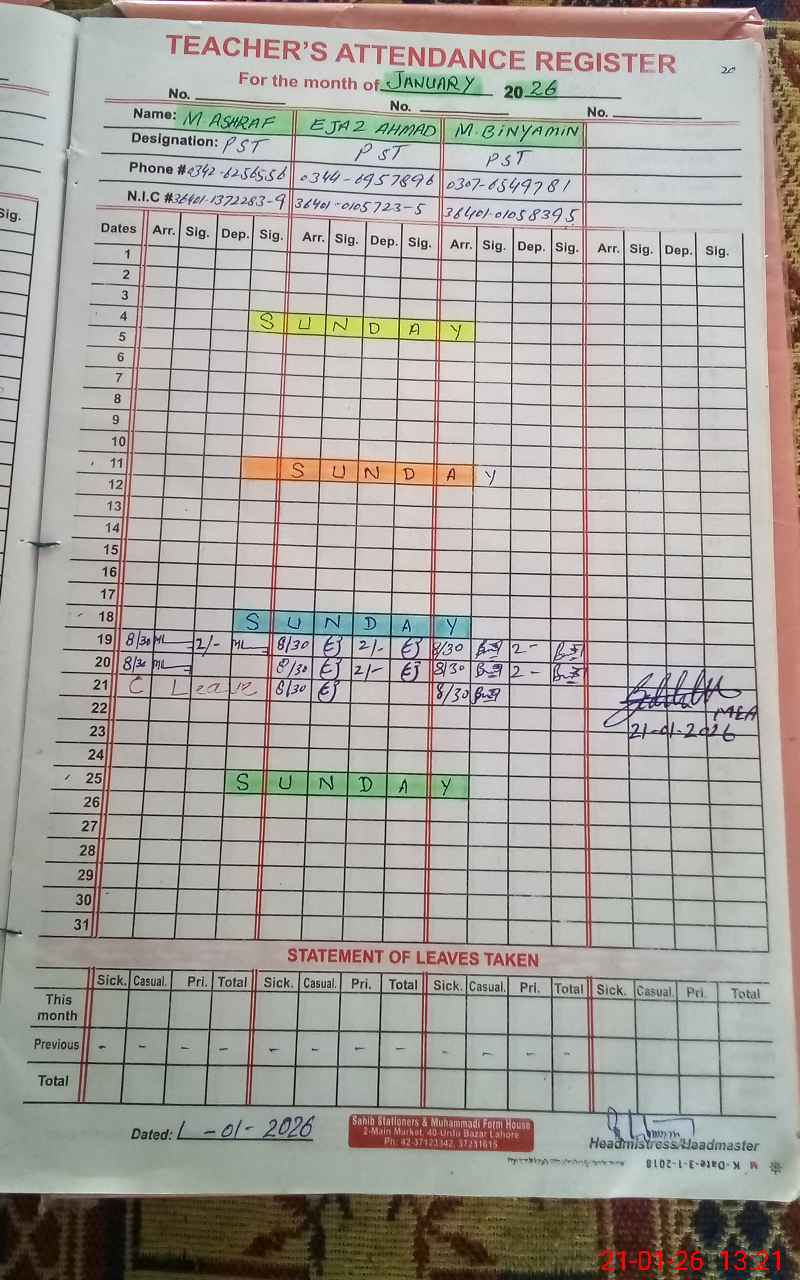 TEACHER'S ATTENDANCE REGISTER
20
For the month of JANUARY 2026
No. No. No.
Name: M ASHRAF EJAZ AHMAD M. BINYAMIN
Designation: PST PST PST
Phone # 0342-6256556 0344-6957896 0307-6549781
N.I.C # 36401-1372283-9 36401-0105723-5 36401-01058395
Sig.
Dates Arr. Sig. Dep. Sig. Arr. Sig. Dep. Sig. Arr. Sig. Dep. Sig. Arr. Sig. Dep. Sig.
1
2
3
4 SUNDAY
5
6
7
8
9
10
11 SUNDAY
12
13
14
15
16
17
18 SUNDAY
19 8/30 2/- 8/30 2/- 8/30 2-
20 8/30 8/30 2/- 8/30 2-
21 C Leave 8/30 8/30
22 MEA
23 21-01-2026
24
25 SUNDAY
26
27
28
29
30
31
STATEMENT OF LEAVES TAKEN
Sick. Casual. Pri. Total Sick. Casual. Pri. Total Sick. Casual. Pri. Total Sick. Casual. Pri. Total
This month
Previous - - - - - - - - - - - -
Total
Dated: 1-01-2026
Sahib Stationers & Muhammadi Form House
2-Main Market, 40-Urdu Bazar Lahore
Ph: 42-37123342, 37231615
Headmistress/Headmaster
M K-Date-3-1-2018
21-01-26 13:21